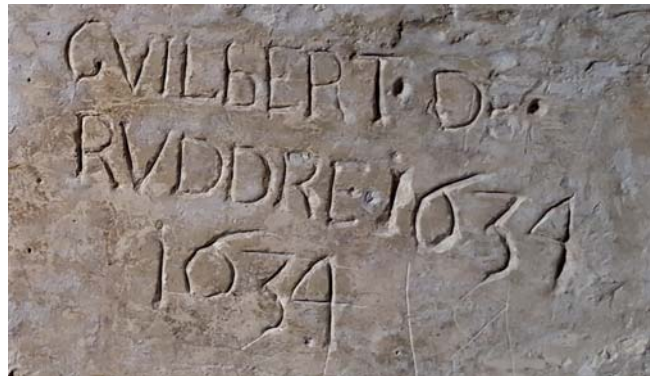 GVILBERT · DE ·
RVDDRE · 1634
1634